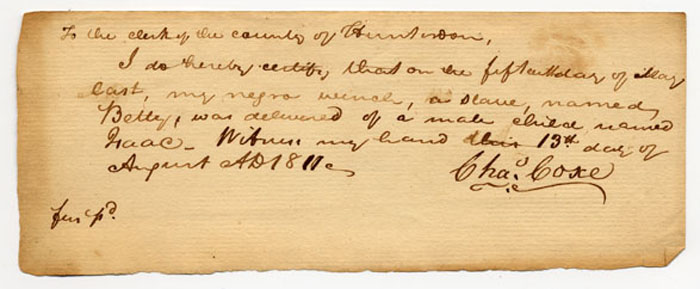 To the clerk of the county of Hunterdon,
I do hereby certify that on the fifteenth day of May
last, my negro wench, a slave, named
Betty, was delivered of a male child named
Isaac – Witness my hand this 13th day of
August AD 1811
Chas. Coxe
fees pd.